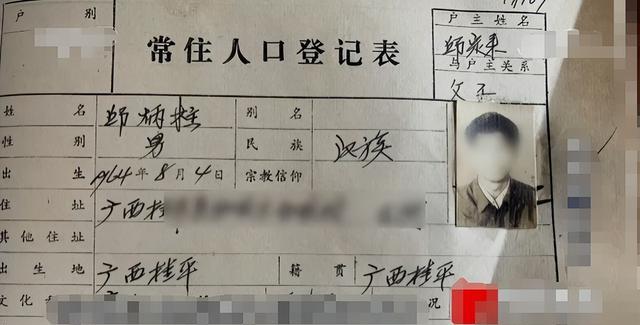 户别
常住人口登记表
户主姓名
与户主关系
父子
姓名 别名
性别 男 民族 汉族
出生 1964年8月4日 宗教信仰
住址 广西桂
其他住址
出生地 广西桂平 籍贯 广西桂平
文化 况